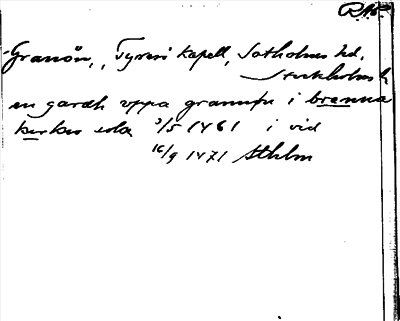 Granön, Tyresö kapell, Sotholms hd,
Stockholms l.
en gardh vppa granøn i brenna
kirkio sokn 3/5 1461 i vid
16/9 1471 Sthlm